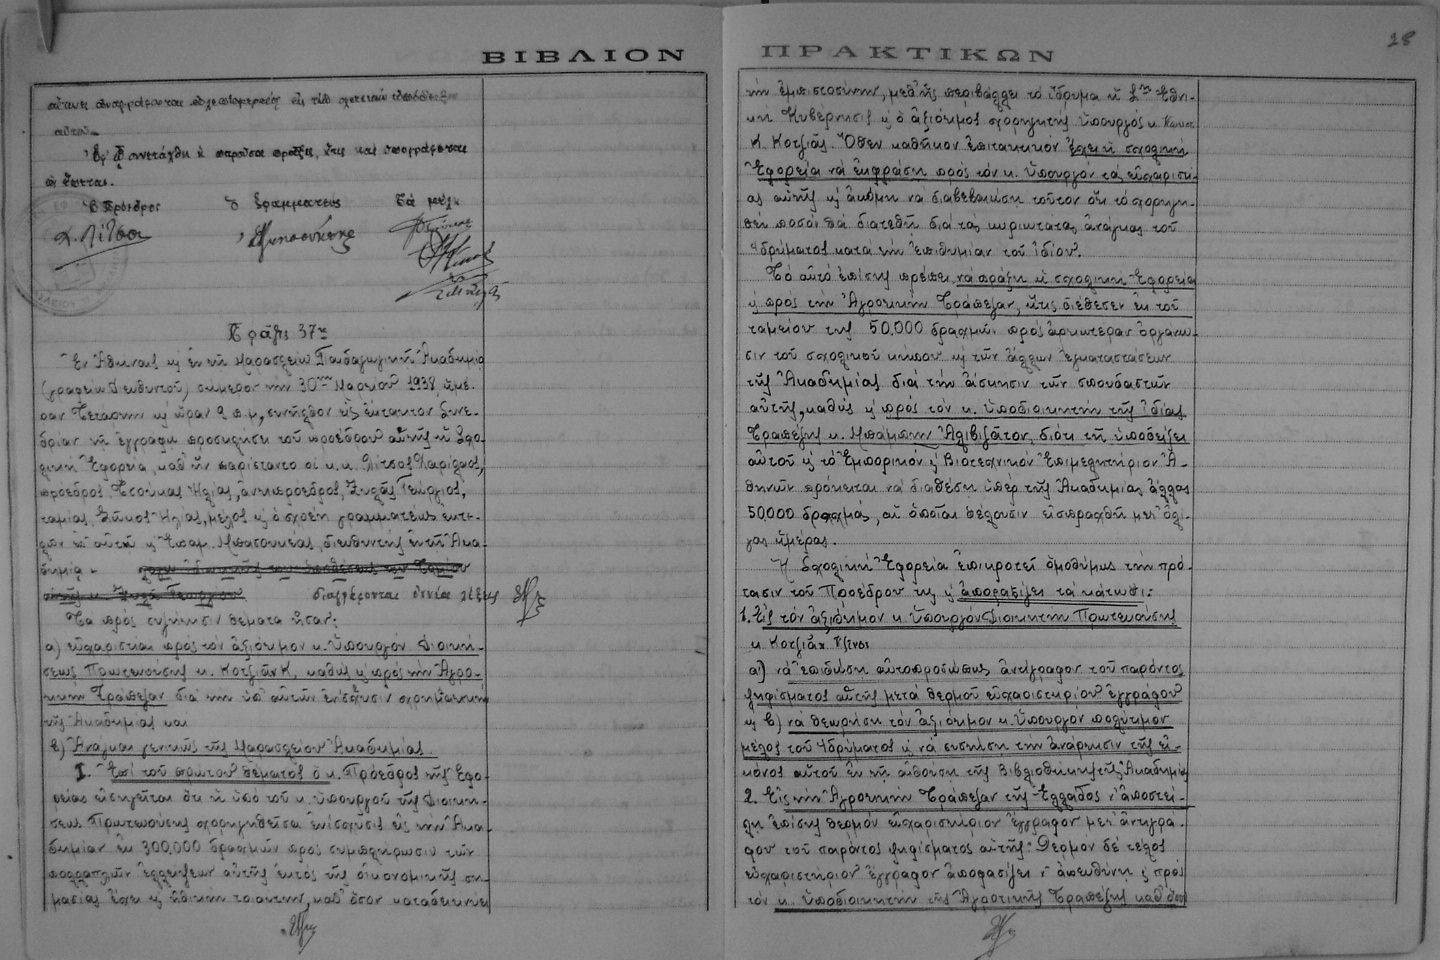 ΒΙΒΛΙΟΝ
αὐτοῦ.
Ἐφ' ᾧ συνετάχθη ἡ παροῦσα πρᾶξις, ἥτις καὶ ὑπογράφεται
ὡς ἕπεται.
Ὁ Πρόεδρος Ὁ Γραμματεύς Τὰ μέλη
Πρᾶξις 37η
Ἐν Ἀθήναις καὶ ἐν τῇ Μαρασλείῳ Παιδαγωγικῇ Ἀκαδημίᾳ
(γραφεῖον Διευθυντοῦ) σήμερον τὴν 30ην Μαρτίου 1938 ἡμέ-
ραν Τετάρτην καὶ ὥραν 9 π.μ, συνῆλθεν εἰς ἔκτακτον συνε-
δρίαν τῇ ἐγγράφῳ προσκλήσει τοῦ προέδρου αὐτῆς ἡ Σχο-
λικὴ Ἐφορεία, καθ' ἣν παρίσταντο οἱ κ.κ. Λίτσος Χαρίλαος,
πρόεδρος, Τσούκας Ἠλίας, ἀντιπρόεδρος, Ξυλᾶς Γεώργιος,
ταμίας, Ζῶκος Ἠλίας, μέλος καὶ ὁ χρέη γραμματέως ἐκτε-
λῶν ἐν αὐτῇ κ. Ἐπαμ. Μπασουκέας, διευθυντὴς ἐν τῇ Ἀκα-
δημίᾳ.
διαγράφονται ἐννέα λέξεις
Τὰ πρὸς συζήτησιν θέματα ἦσαν:
α) εὐχαριστίαι πρὸς τὸν ἀξιότιμον κ. Ὑπουργὸν Διοική-
σεως Πρωτευούσης κ. Κοτζιᾶν Κ, καθὼς καὶ πρὸς τὴν Ἀγρο-
τικὴν Τράπεζαν διὰ τὴν ὑπ' αὐτῶν ἐνίσχυσιν χρηματικὴν
τῆς Ἀκαδημίας καὶ
β) Ἀνάγκαι γενικῶς τῆς Μαρασλείου Ἀκαδημίας.
I. Ἐπὶ τοῦ πρώτου θέματος ὁ κ. Πρόεδρος τῆς Ἐφο-
ρείας εἰσηγεῖται ὅτι ἡ ὑπὸ τοῦ κ. Ὑπουργοῦ τῆς Διοική-
σεως Πρωτευούσης χορηγηθεῖσα ἐνίσχυσις εἰς τὴν Ἀκα-
δημίαν ἐκ 300.000 δραχμῶν πρὸς συμπλήρωσιν τῶν
πολλαπλῶν ἐλλείψεων αὐτῆς ἐκτὸς τῆς οἰκονομικῆς ση-
μασίας ἔχει καὶ ἠθικὴν τοιαύτην, καθ' ὅσον καταδεικνύει
ΠΡΑΚΤΙΚΩΝ
28
τὴν ἐμπιστοσύνην, μεθ' ἧς περιβάλλει τὸ ἵδρυμα ἡ Σ. Ἐθνι-
κὴ Κυβέρνησις καὶ ὁ ἀξιότιμος χορηγητὴς Ὑπουργὸς κ.
Κ. Κοτζιᾶς. Ὅθεν καθῆκον ἐπιτακτικὸν ἔχει ἡ σχολικὴ
Ἐφορεία νὰ ἐκφράσῃ πρὸς τὸν κ. Ὑπουργὸν τὰς εὐχαριστί-
ας αὐτῆς καὶ ἀκόμη νὰ διαβεβαιώσῃ τοῦτον ὅτι τὸ χορηγη-
θὲν ποσὸν θὰ διατεθῇ διὰ τὰς κυριωτάτας ἀνάγκας τοῦ
Ἱδρύματος κατὰ τὴν ἐπιθυμίαν τοῦ ἰδίου.
Τὸ αὐτὸ ἐπίσης πρέπει νὰ πράξῃ ἡ σχολικὴ Ἐφορεία
καὶ πρὸς τὴν Ἀγροτικὴν Τράπεζαν, ἥτις διέθεσεν ἐκ τοῦ
ταμείου της 50.000 δραχμῶν πρὸς ἀρτιωτέραν ὀργάνω-
σιν τοῦ σχολικοῦ κήπου καὶ τῶν ἄλλων ἐγκαταστάσεων
τῆς Ἀκαδημίας διὰ τὴν ἄσκησιν τῶν σπουδαστῶν
αὐτῆς, καθὼς καὶ πρὸς τὸν κ. Ὑποδιοικητὴν τῆς ἰδίας
Τραπέζης κ. Μπάμπην Ἀλιβιζᾶτον, διότι τῇ ὑποδείξει
αὐτοῦ καὶ τὸ Ἐμπορικὸν καὶ Βιοτεχνικὸν Ἐπιμελητήριον Ἀ-
θηνῶν πρόκειται νὰ διαθέσῃ ὑπὲρ τῆς Ἀκαδημίας ἄλλας
50.000 δραχμάς, αἱ ὁποῖαι θέλουσιν εἰσπραχθῆ μετ' ὀλί-
γας ἡμέρας.
Ἡ Σχολικὴ Ἐφορεία ἐπικροτεῖ ὁμοθύμως τὴν πρό-
τασιν τοῦ Προέδρου της καὶ ἀποφασίζει τὰ κάτωθι:
1. Εἰς τὸν ἀξιότιμον κ. Ὑπουργὸν Διοικητὴν Πρωτευούσης
κ. Κοτζιᾶν
α) νὰ ἐπιδώσῃ αὐτοπροσώπως ἀντίγραφον τοῦ παρόντος
ψηφίσματος αὐτῆς μετὰ θερμοῦ εὐχαριστηρίου ἐγγράφου
καὶ β) νὰ θεωρήσῃ τὸν ἀξιότιμον κ. Ὑπουργὸν πολύτιμον
μέλος τοῦ Ἱδρύματος καὶ νὰ συστήσῃ τὴν ἀνάρτησιν τῆς εἰ-
κόνος αὐτοῦ ἐν τῇ αἰθούσῃ τῆς Βιβλιοθήκης τῆς Ἀκαδημίας
2. Εἰς τὴν Ἀγροτικὴν Τράπεζαν τῆς Ἑλλάδος ν' ἀποστεί-
λῃ ἐπίσης θερμὸν εὐχαριστήριον ἔγγραφον μετ' ἀντιγρά-
φου τοῦ παρόντος ψηφίσματος αὐτῆς. Θερμὸν δὲ τέλος
εὐχαριστήριον ἔγγραφον ἀποφασίζει ν' ἀπευθύνῃ καὶ πρὸς
τὸν κ. Ὑποδιοικητὴν τῆς Ἀγροτικῆς Τραπέζης καθ' ὅσον